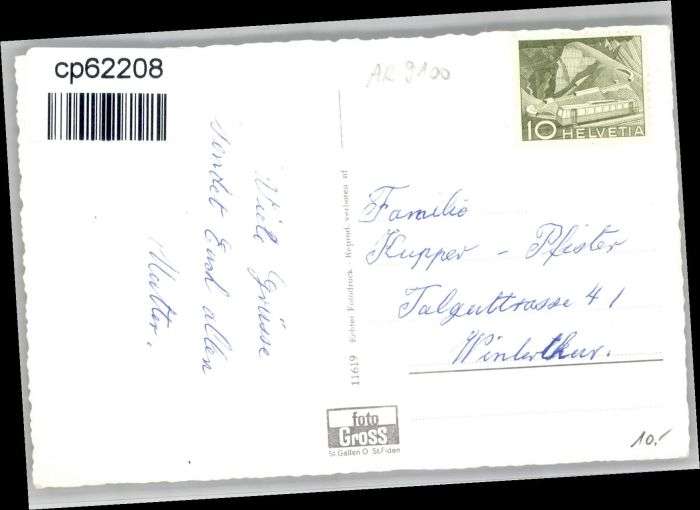 cp62208
AR 9100
10 HELVETIA
Viele Grüsse
sendet Euch allen
Mutter.
Familie
Kupper - Pfister
Talgutstrasse 41
Winterthur.
11619 Echter Fotodruck Reprod. verboten
foto
Gross
St. Gallen O St. Fiden
10.-